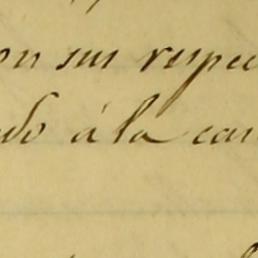 on sus respec
do á la car